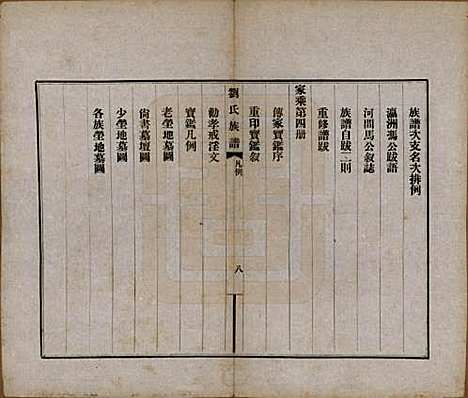 族譜次支名次排例
瀛洲馮公跋語
河間馬公叙誌
族譜自跋二則
重修譜跋
家乘第四册
傳家寶鑑序
重印寶鑑叙
劉氏族譜 凡例 八
勸孝戒淫文
寶鑑凡例
老塋地墓圖
尚書墓壇圖
少塋地墓圖
各族塋地墓圖